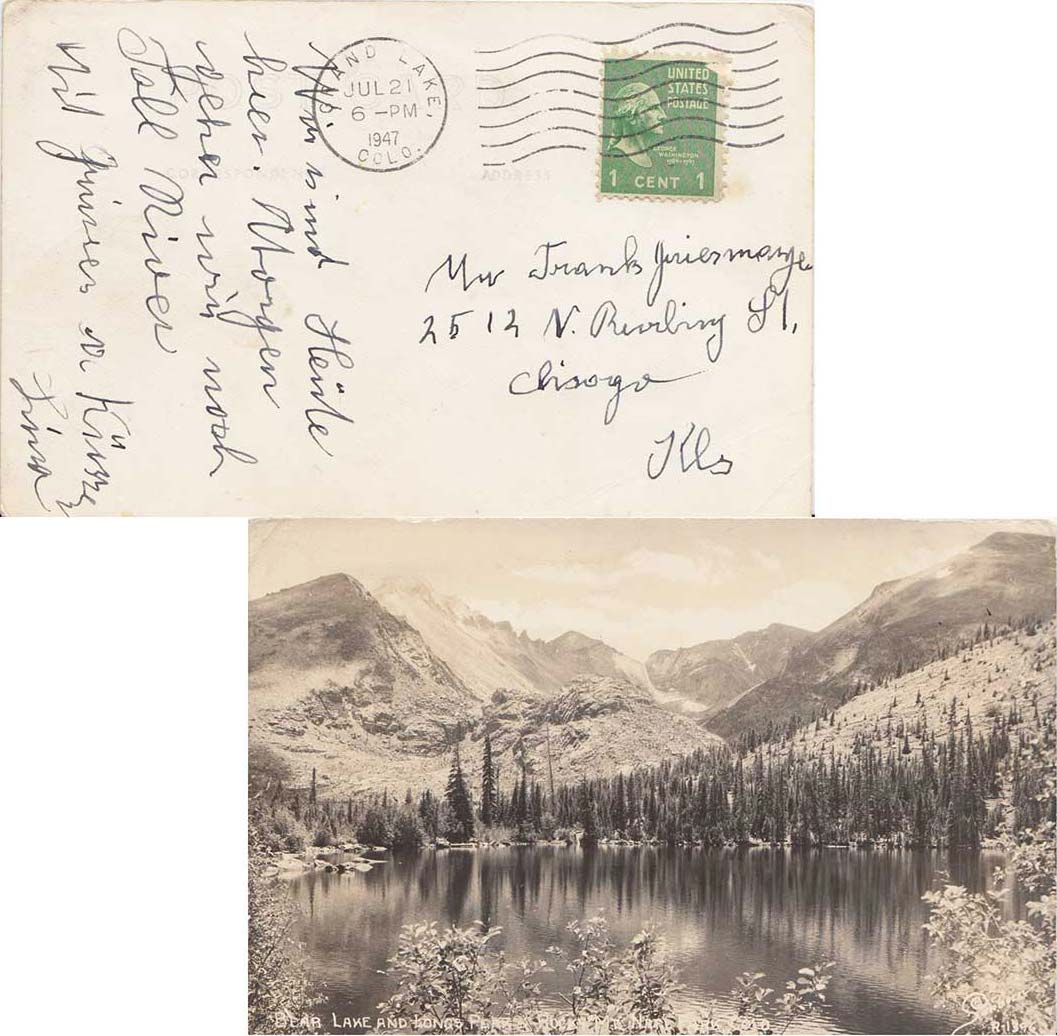 Wir sind Heute
hier. Morgen
gehen wir noch
Fall River
Mit Grüsse u Küsse
GRAND LAKE,
JUL 21
6 - PM
1947
COLO.
UNITED
STATES
POSTAGE
GEORGE
WASHINGTON
1 CENT 1
ADDRESS
Mr Frank Griesmaye
2512 N. St,
Chicago
Ills
BEAR LAKE AND LONGS PEAK ROCKY MT. NAT. PARK COLO.